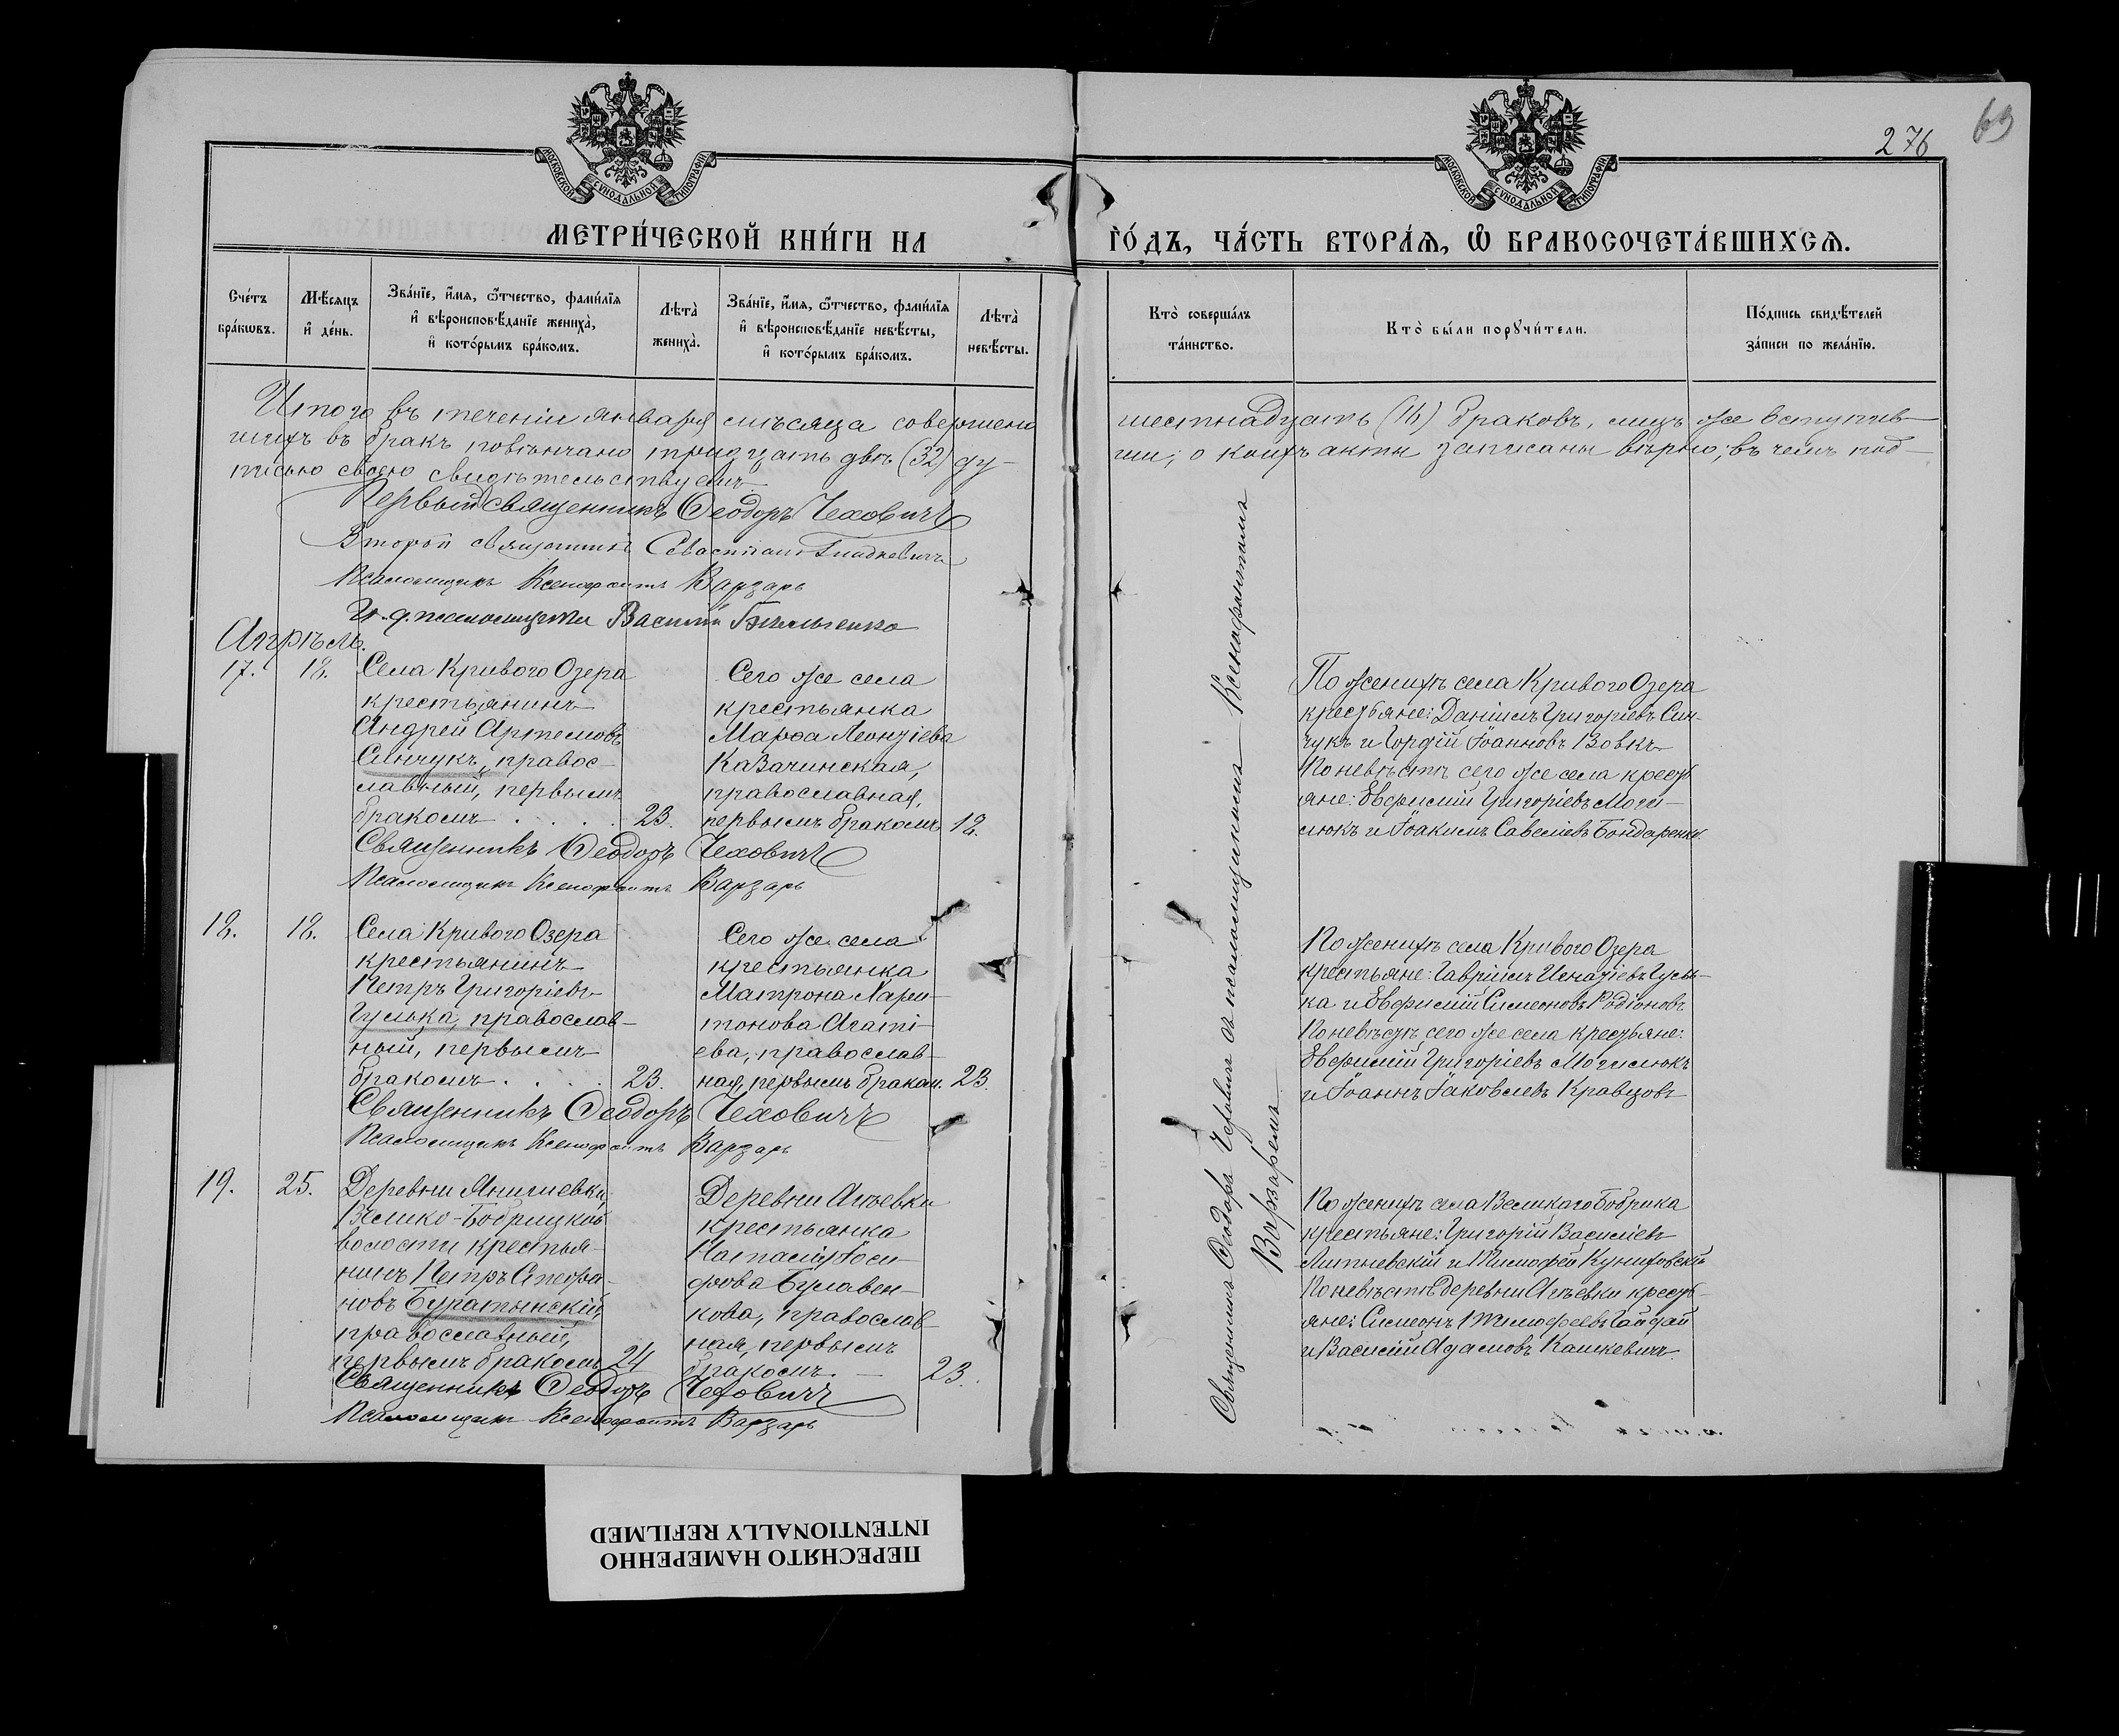 276
69
МОСКОВСКОЙ СУНОДАЛЬНОЙ ТИПОГРАФІИ
МОСКОВСКОЙ СУНОДАЛЬНОЙ ТИПОГРАФІИ
МЕТРИ́ЧЕСКОЙ КНИ́ГИ НА
ГО́ДЪ, ЧА́СТЬ ВТОРА́Ѧ, Ѽ БРАКОСОЧЕТА́ВШИХСѦ.
Сче́тъ бра́кѡвъ.
Мѣ́сяцъ и де́нь.
Зва́нїе, и́мѧ, ѻ́тчество, фами́лїѧ и вѣроисповѣ́данїе жениха̀, и кото́рымъ бра́комъ.
Лѣта̀ жениха̀.
Зва́нїе, и́мѧ, ѻ́тчество, фами́лїѧ и вѣроисповѣ́данїе невѣ́сты, и кото́рымъ бра́комъ.
Лѣта̀ невѣ́сты.
Кто̀ соверша́лъ та́инство.
Кто̀ бы́ли порꙋчи́тели.
По́дпись свидѣ́телей за́писи по жела́нїю.
Итого въ теченіи января мѣсяца совершено
шестнадцать (16) браковъ, лицъ же вступив-
шихъ въ бракъ повѣнчано тридцать двѣ (32) ду-
ши; о коихъ акты записаны вѣрно; въ чемъ под-
писью своею свидѣтельствуемъ
Первый священникъ Ѳеодоръ Чеховичъ
Второй священникъ Севастіанъ
Псаломщикъ Ксенофонтъ Варзарь
И. д. псаломщика Василій
Апрѣль.
17.
18.
Села Криваго Озера
крестьянинъ
Андрей Артемовъ
Синчукъ, правос-
лавный, первымъ
бракомъ . . . .
23.
Сего же села
крестьянка
Марѳа Леонтіева
Казачинская,
православная,
первымъ бракомъ
18.
Священникъ Ѳеодоръ Чеховичъ
Псаломщикъ Ксенофонтъ Варзарь
По женихѣ села Криваго Озера
крестьяне: Даніилъ Григоріевъ Син-
чукъ и Гордій Іоанновъ Вовкъ
По невѣстѣ сего же села кресть
яне: Евфимій Григоріевъ Моги-
люкъ и Іоакимъ Савеліевъ Бондаренко.
18.
18.
Села Криваго Озера
крестьянинъ
Петръ Григоріевъ
Гулька, православ-
ный, первымъ
бракомъ . . . .
23.
Сего же села
крестьянка
Матрона Хари-
тонова Агапі-
ева, православ-
ная, первымъ браком.
23.
Священникъ Ѳеодоръ Чеховичъ
Псаломщикъ Ксенофонтъ Варзарь
По женихѣ села Криваго Озера
крестьяне: Гавріилъ Игнатіевъ Гуль-
ка и Евфимій Симеоновъ Родіоновъ
По невѣстѣ сего же села крестьяне:
Евфимій Григоріевъ Могилюкъ
и Іоаннъ Іаковлевъ Кравцовъ
19.
25.
Деревни
Велико-Бобрицкой
волости крестья-
нинъ Петръ Стефа-
новъ Буратынскій,
православный,
первымъ бракомъ
24
Деревни Агѣевки
крестьянка
Настасія Іоси-
фова Булавен-
кова, православ-
ная, первымъ
бракомъ. —
23.
Священникъ Ѳеодоръ Чеховичъ
Псаломщикъ Ксенофонтъ Варзарь
По женихѣ села Великаго Бобрика
крестьяне: Григорій Василіевъ
и Тимофей Куниховскій
По невѣстѣ деревни Агѣевки кресть-
яне: Симеонъ Тимофеевъ Гайдай
и Василій Адамовъ Кашкевичъ.
Священникъ Ѳеодоръ Чеховичъ съ псаломщикомъ Ксенофонтомъ
Варзаремъ
ПЕРЕСНЯТО НАМЕРЕННО
INTENTIONALLY REFILMED